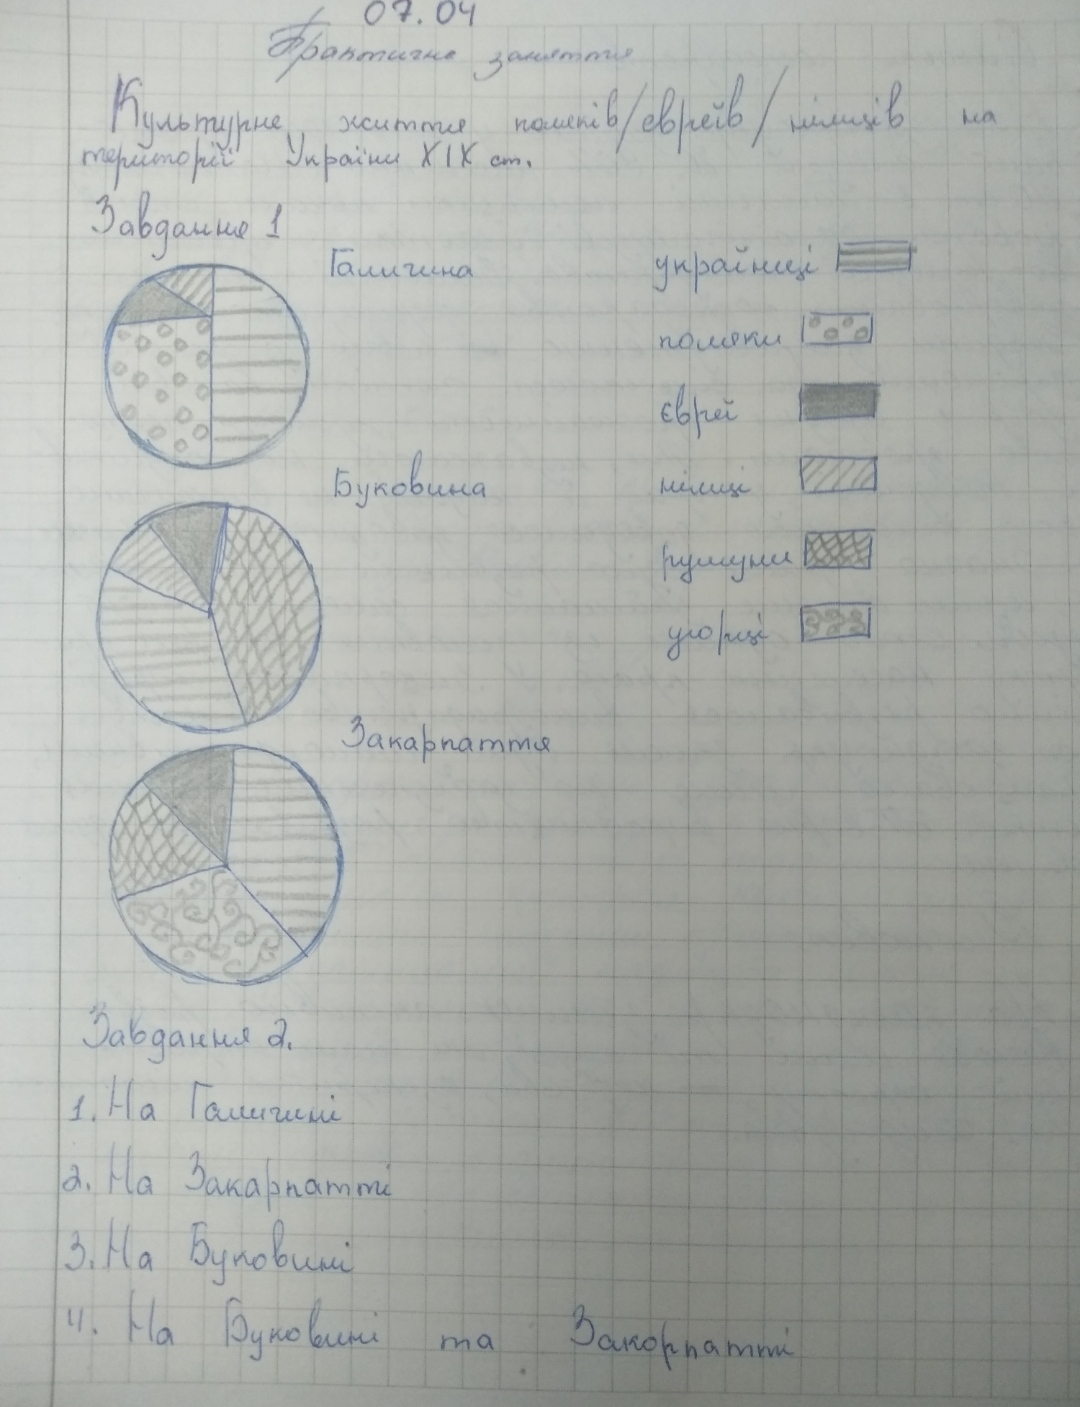 07.04
Практичне заняття
Культурне життя поляків/євреїв/німців на
території України XIX ст.
Завдання 1
Галичина
українці
поляки
євреї
Буковина
німці
румуни
угорці
Закарпаття
Завдання 2.
1. На Галичині
2. На Закарпатті
3. На Буковині
4. На Буковині та Закорпатті